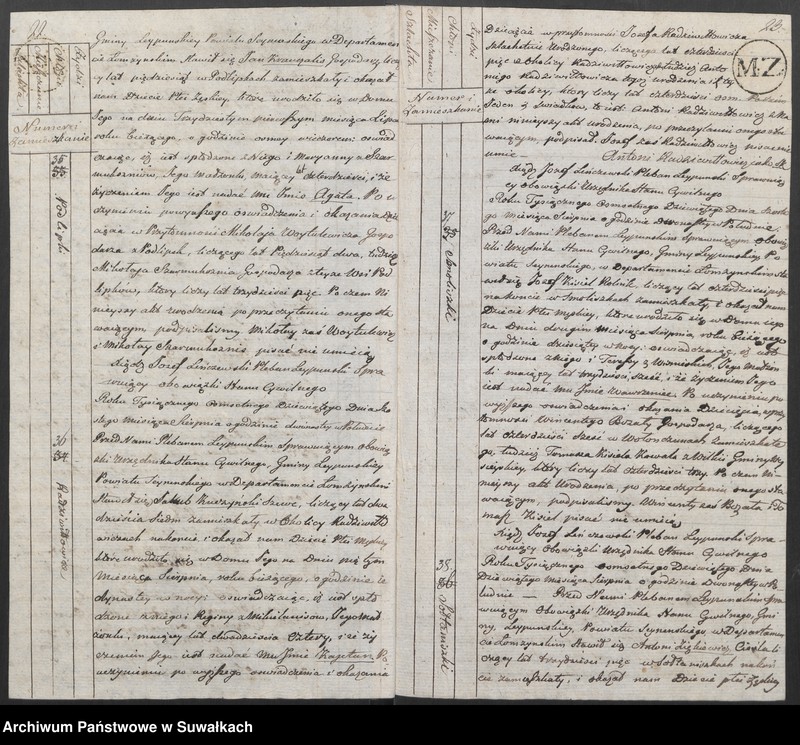 22
Żydzi
Chłopi
Mieszczanie
Szlachta
Numer i
Zamieszkanie
36
Podlipki
Gminy Leypunskiey Powiatu Seynenskiego w Departamen
cie Łomżynskim Stawił się Jan
cy lat pięćdziesiąt w Podlipkach zamieszkały i okazał
nam Dziecie Płci Żęskiey, które urodziło się w Domu
Jego na dniu Trzydziestym pierwszym miesiąca Lipca
roku bieżącego, o godzinie osmey wieczorem: oświad
czaiąc, iż iest spłodzone z Niego i Maryanny z Szar
Jego Małżonki, maiącey lat czterdzieści, i że
życzeniem Jego iest nadać mu Jmie Agata. Po u
czynieniu powyższego oświadczenia i okazania Dzie
cięcia w Przytomności Mikołaja Woytulewicza Gospo
darza z Podlipek, liczącego lat Pięćdziesiąt dwa, tudzież
Mikołaja Gospodarza z teyże Wsi Pod
lipków, ktory liczy lat trzydzieści pięć. Po czem Ni
nieyszy akt urodzenia po przeczytaniu onego sta
waiącym podpisaliśmy. Mikołay zaś Woytulewicz
i Mikołay pisać nie umieią
Xiądz Jozef Linczewski Pleban Leypunski Spra
wuiący obowiązki Stanu Cywilnego
Roku Tysiącznego osmsetnego dziewiątego Dnia szo
stego miesiąca Sierpnia o godzinie dwunastey w Południe
Przed Nami Plebanem Leypunskim Sprawuiącym obowią
zki Urzędnika Stanu Cywilnego, Gminy Leypunskiey
Powiatu Seynenskiego w Departamencie Łomżynskim
Stawił się Jakub Kuczynski Szewc, liczący lat dwa
dzieścia siedm zamieszkały w Okolicy Radziwiłło
wiczach na koncie, i okazał nam Dziecie Płci Męskiey
które urodziło się w Domu Jego na Dniu
Miesiąca Sierpnia, roku bieżącego, o godzinie ie
dynastey w nocy: oświadczaiąc, iż iest spło
dzone z niego i Reginy z Jego Mał
żonki, maiącey lat dwadzieścia cztery, i że ży
czeniem Jego iest nadać mu Jmie Kajetan. Po
uczynieniu po wyższego oświadczenia i okazania
Radziwiłłowicze
23.
M.Z.
Żydzi
Chłopi
Mieszczanie
Szlachta
Numer i
Zamieszkanie
37
Smoliszki
38.
Sołtaniszki
Dziecięcia w przytomności Jozefa Radziwiłłowicza
Szlachetnie Urodzonego, liczącego lat czterdzieści
pięć z Okolicy Radziwiłłowicz tudzież Anto
niego Radziwiłłowicza tegoż urodzenia i tey
że okolicy, ktory liczy lat czterdzieści osm.
Jeden z Swiadków, to iest: Antoni Radziwiłłowicz z Na
mi ninieyszy akt urodzenia, po przeczytaniu onego sta
waiącym, podpisał. Jozef zaś Radziwiłłowicz pisać nie
umie — Antoni Radziwiłłowicz jako
Xiądz Jozef Linczewski Pleban Leypunski Sprawuią
cy obowiązki Urzędnika Stanu Cywilnego
Roku Tysiącznego Osmsetnego Dziewiątego Dnia szoste
go miesiąca Sierpnia o godzinie Dwunastey w Południe.
Przed Nami Plebanem Leypunskim Sprawuiącym obowią
zki Urzędnika Stanu Cywilnego, Gminy Leypunskiey Po
wiatu Seynenskiego, w Departamencie Łomżynskim sta
wił się Jozef Kisiel Rolnik, liczący lat czterdzieści pięć
na koncie w Smoliszkach zamieszkały, i okazał nam
Dziecie Płci Męskiey, które urodziło się w Domu iego
na Dniu drugim miesiąca Sierpnia, roku bieżącego
o godzinie dziesiątey w Nocy: oświadczaiąc, iż iest
spłodzone z Niego i Teresy z Jego Małżon
ki maiącey lat trzydzieści sześć, i że życzeniem Jego
iest nadać mu Jmie Wawrzeniec. Po uczynieniu po
wyższego oświadczenia i okazania Dziecięcia, w przy
tomności Wincentego Buzaty Gospodarza, liczącego
lat czterdzieści sześć w Wołonczunach zamieszkałe
go, tudzież Tomasza Kisiela Kowala z Wilki Gminy
ktory liczy lat czterdzieści trzy. Po czem Ni
nieyszy akt Urodzenia, po przeczytaniu onego sta
waiącym, podpisaliśmy. Wincenty zaś Buzata i To
masz Kisiel pisać nie umieią
Xiądz Jozef Linczewski Pleban Leypunski Spra
wuiący Obowiązki Urzędnika Stanu Cywilnego
Roku Tysiącznego osmsetnego Dziewiątego Dnia
Dziewiątego miesiąca Sierpnia o godzinie Dwunastey w Po
łudnie — Przed Nami Plebanem Leypunskim Spra
wuiącym Obowiązki Urzędnika Stanu Cywilnego, Gmi
ny Leypunskiey, Powiatu Seynenskiego, w Departamen
cie Łomżynskim Stawił się Antoni Cieśla li
czący lat trzydzieści pięć w Sołtaniszkach na kon
cie zamieszkały, i okazał nam Dziecie płci Żęskiey
Archiwum Państwowe w Suwałkach